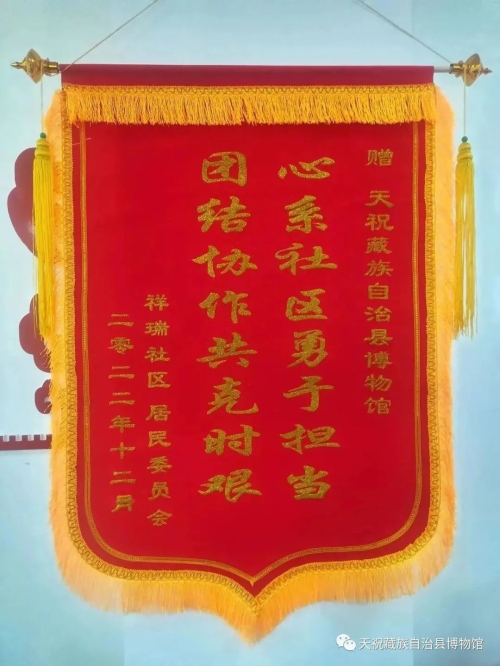 赠 天祝藏族自治县博物馆
心系社区勇于担当
团结协作共克时艰
祥瑞社区 居民委员会
二零二二年十二月
天祝藏族自治县博物馆